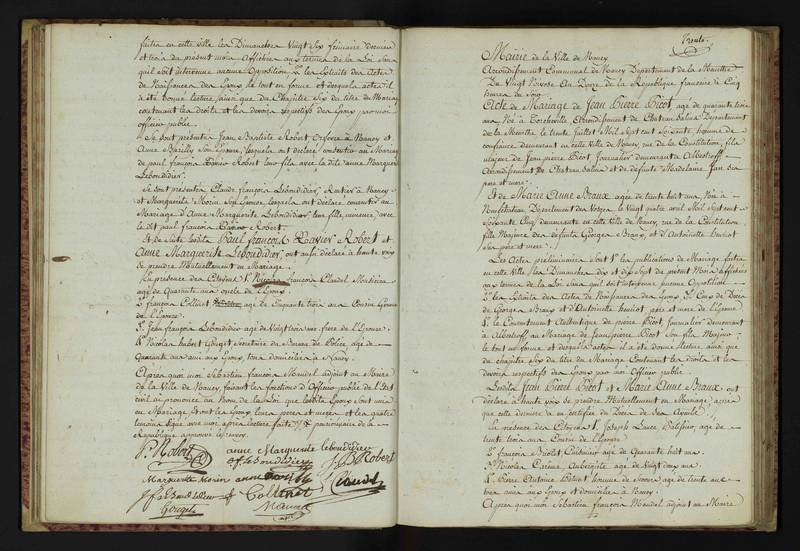 faites en cette ville les Dimanches Vingt Six frimaire dernier
et trois du présent mois Affichées aux termes de la Loi Sans
qu'il soit determiné aucune Opposition 2. les Extraits des Actes
de Naissances des Epoux le tout en forme et desquels actes il
a été donné lecture, ainsi que du Chapitre Six du titre du Mariage
contenant les droits et les devoirs respectifs des Epoux par moi
officier public
Se sont présentés Jean Baptiste Robert Orfevre à Nancy et
Anne Bailly Son Epouse, lesquels ont déclaré consentir au Mariage
de paul françois Xavier Robert leur fils avec la dite anne Marguerite
Leboudidier
Se sont présentés Claude françois Leboudidier, Rentier à Nancy
et Marguerite Morin Son Epouse lesquels ont déclaré consentir au
Mariage d'Anne Marguerite Leboudidier, leur fille mineure, avec
le dit paul françois Xavier Robert.
Et de Suite lesdits Paul françois Xavier Robert et
Anne Marguerite Leboudidier, ont aussi déclaré à haute voix
se prendre Mutuellement en Mariage
En presence des Citoyens 1. Nicolas françois Claudel
age de quarante oncle de l'Epoux
2. françois Collinet age de Cinquante trois ans Cousin Germain
de l'Epouse
3. Jean françois Leboudidier age de Vingt trois ans frere de l'Epouse
4. Nicolas hubert Gouget Secretaire du Bureau de Police, age de
Quarante ans tous domiciliés à Nancy.
Après quoi moi Sebastien françois Mandel adjoint au Maire
de la Ville de Nancy, faisant les fonctions d'Officier public de l'Etat
civil ai prononcé au nom de la Loi que lesdits Epoux sont unis
en Mariage et ont les Epoux leurs peres et meres et les quatre
temoins signé avec moi après lecture faite
Republique approuvé
P. Robert anne Marguerite leboudidier
J B Robert
Marguerite Morin
Claudel
Collinet
Gouget
Mandel
Trente.
Mairie de la Ville de Nancy
Arrondissement Communal de Nancy Departement de la Meurthe
Du Vingt Nivose An Douze de la Republique française à Cinq
heures du Soir
Acte de Mariage de Jean Pierre Bicot, age de quarante trois
ans, Né à Arrondissement de Chateau Salins Departement
de la Meurthe le trente Juillet Mil Sept cent Soixante, homme de
confiance demeurant en cette Ville de Nancy, rue de la Constitution, fils
majeur de Jean pierre Bicot Journalier demeurant à Albestroff
Arrondissement de Chateau Salins et de defunte Madelaine Jan Ses
pere et mere
Et de Marie Anne Braux agée de trente huit ans, Née à
Neufchateau Departement des Vosges le Vingt quatre avril Mil Sept cent
Soixante Cinq demeurante en cette Ville de Nancy, rue de la Constitution
fille Majeure des defunts Georges Braux, et d'Antoinette
Ses pere et mere
Les Actes preliminaires Sont 1. les publications de Mariage faites
en cette Ville, les Dimanches dix et dix Sept du présent Mois affichées
aux termes de la Loi Sans qu'il soit Survenu aucune Opposition
2. les Extraits des Actes de Naissances des Epoux, 3. Ceux de Deces
de Georges Braux et d'Antoinette pere et mere de l'Epouse
4. le Consentement Authentique de pierre Bicot, Journalier demeurant
à Albestroff, au Mariage de Jean pierre Bicot Son fils Majeur,
le tout en forme et desquels actes il a été donné lecture ainsi que
du chapitre Six du titre du Mariage Contenant les droits et les
devoirs respectifs des Epoux par moi Officier public.
Lesdits Jean Pierre Bicot et Marie Anne Braux ont
déclaré à haute voix se prendre Mutuellement en Mariage après
que cette derniere a certifié du Deces de Ses Ayeuls
En presence des Citoyens 1. Joseph Luce age de
trente trois ans Cousin de l'Epouse
2. françois Cuisinier age de Quarante huit ans
3. Nicolas Aubergiste age de Vingt cinq ans
4. Pierre Antoine age de trente
ans aux Epoux et domicilié à Nancy
Après quoi moi Sebastien françois Mandel adjoint au Maire